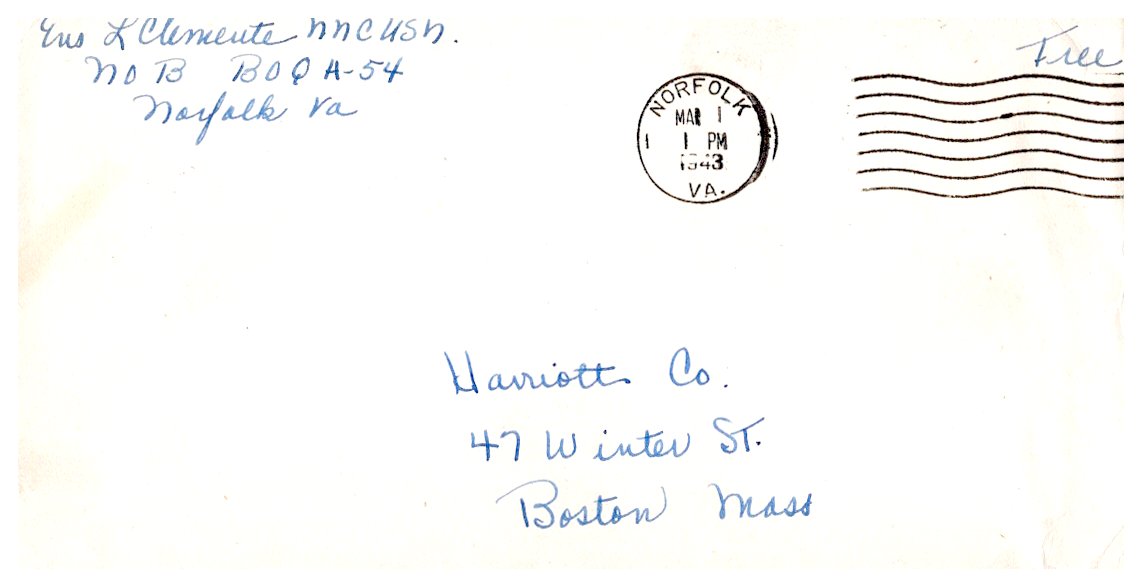 Ens L Clemente NNC USN.
NOB BOQ A-54
Norfolk Va
Free
NORFOLK
MAR 1
1 1 PM
1943
VA.
Harriott Co.
47 Winter St.
Boston Mass